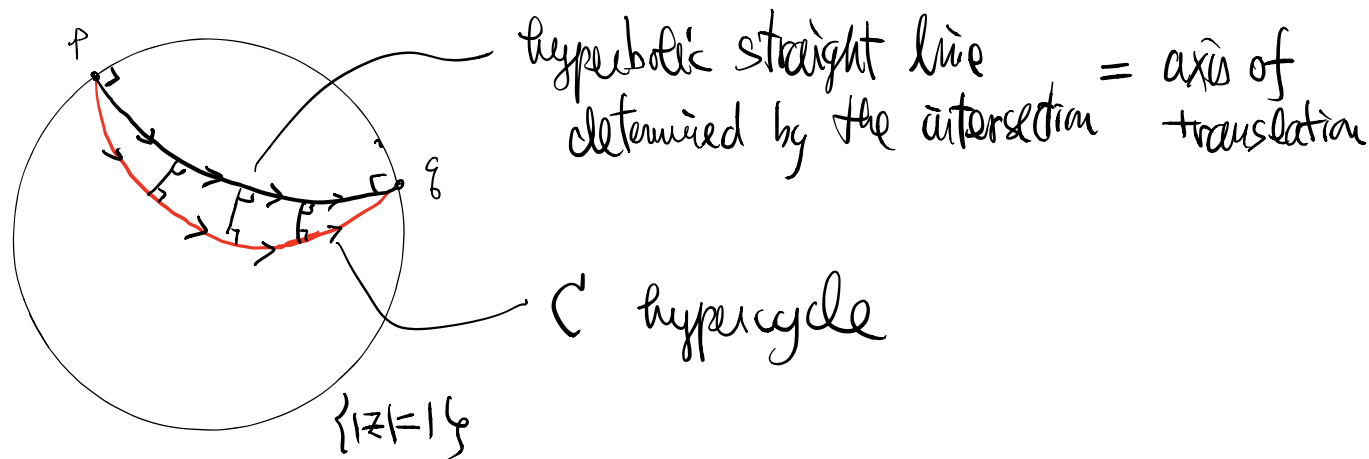 p
hyperbolic straight line
determined by the intersection
= axis of
translation
q
C hypercycle
{|z|=1}